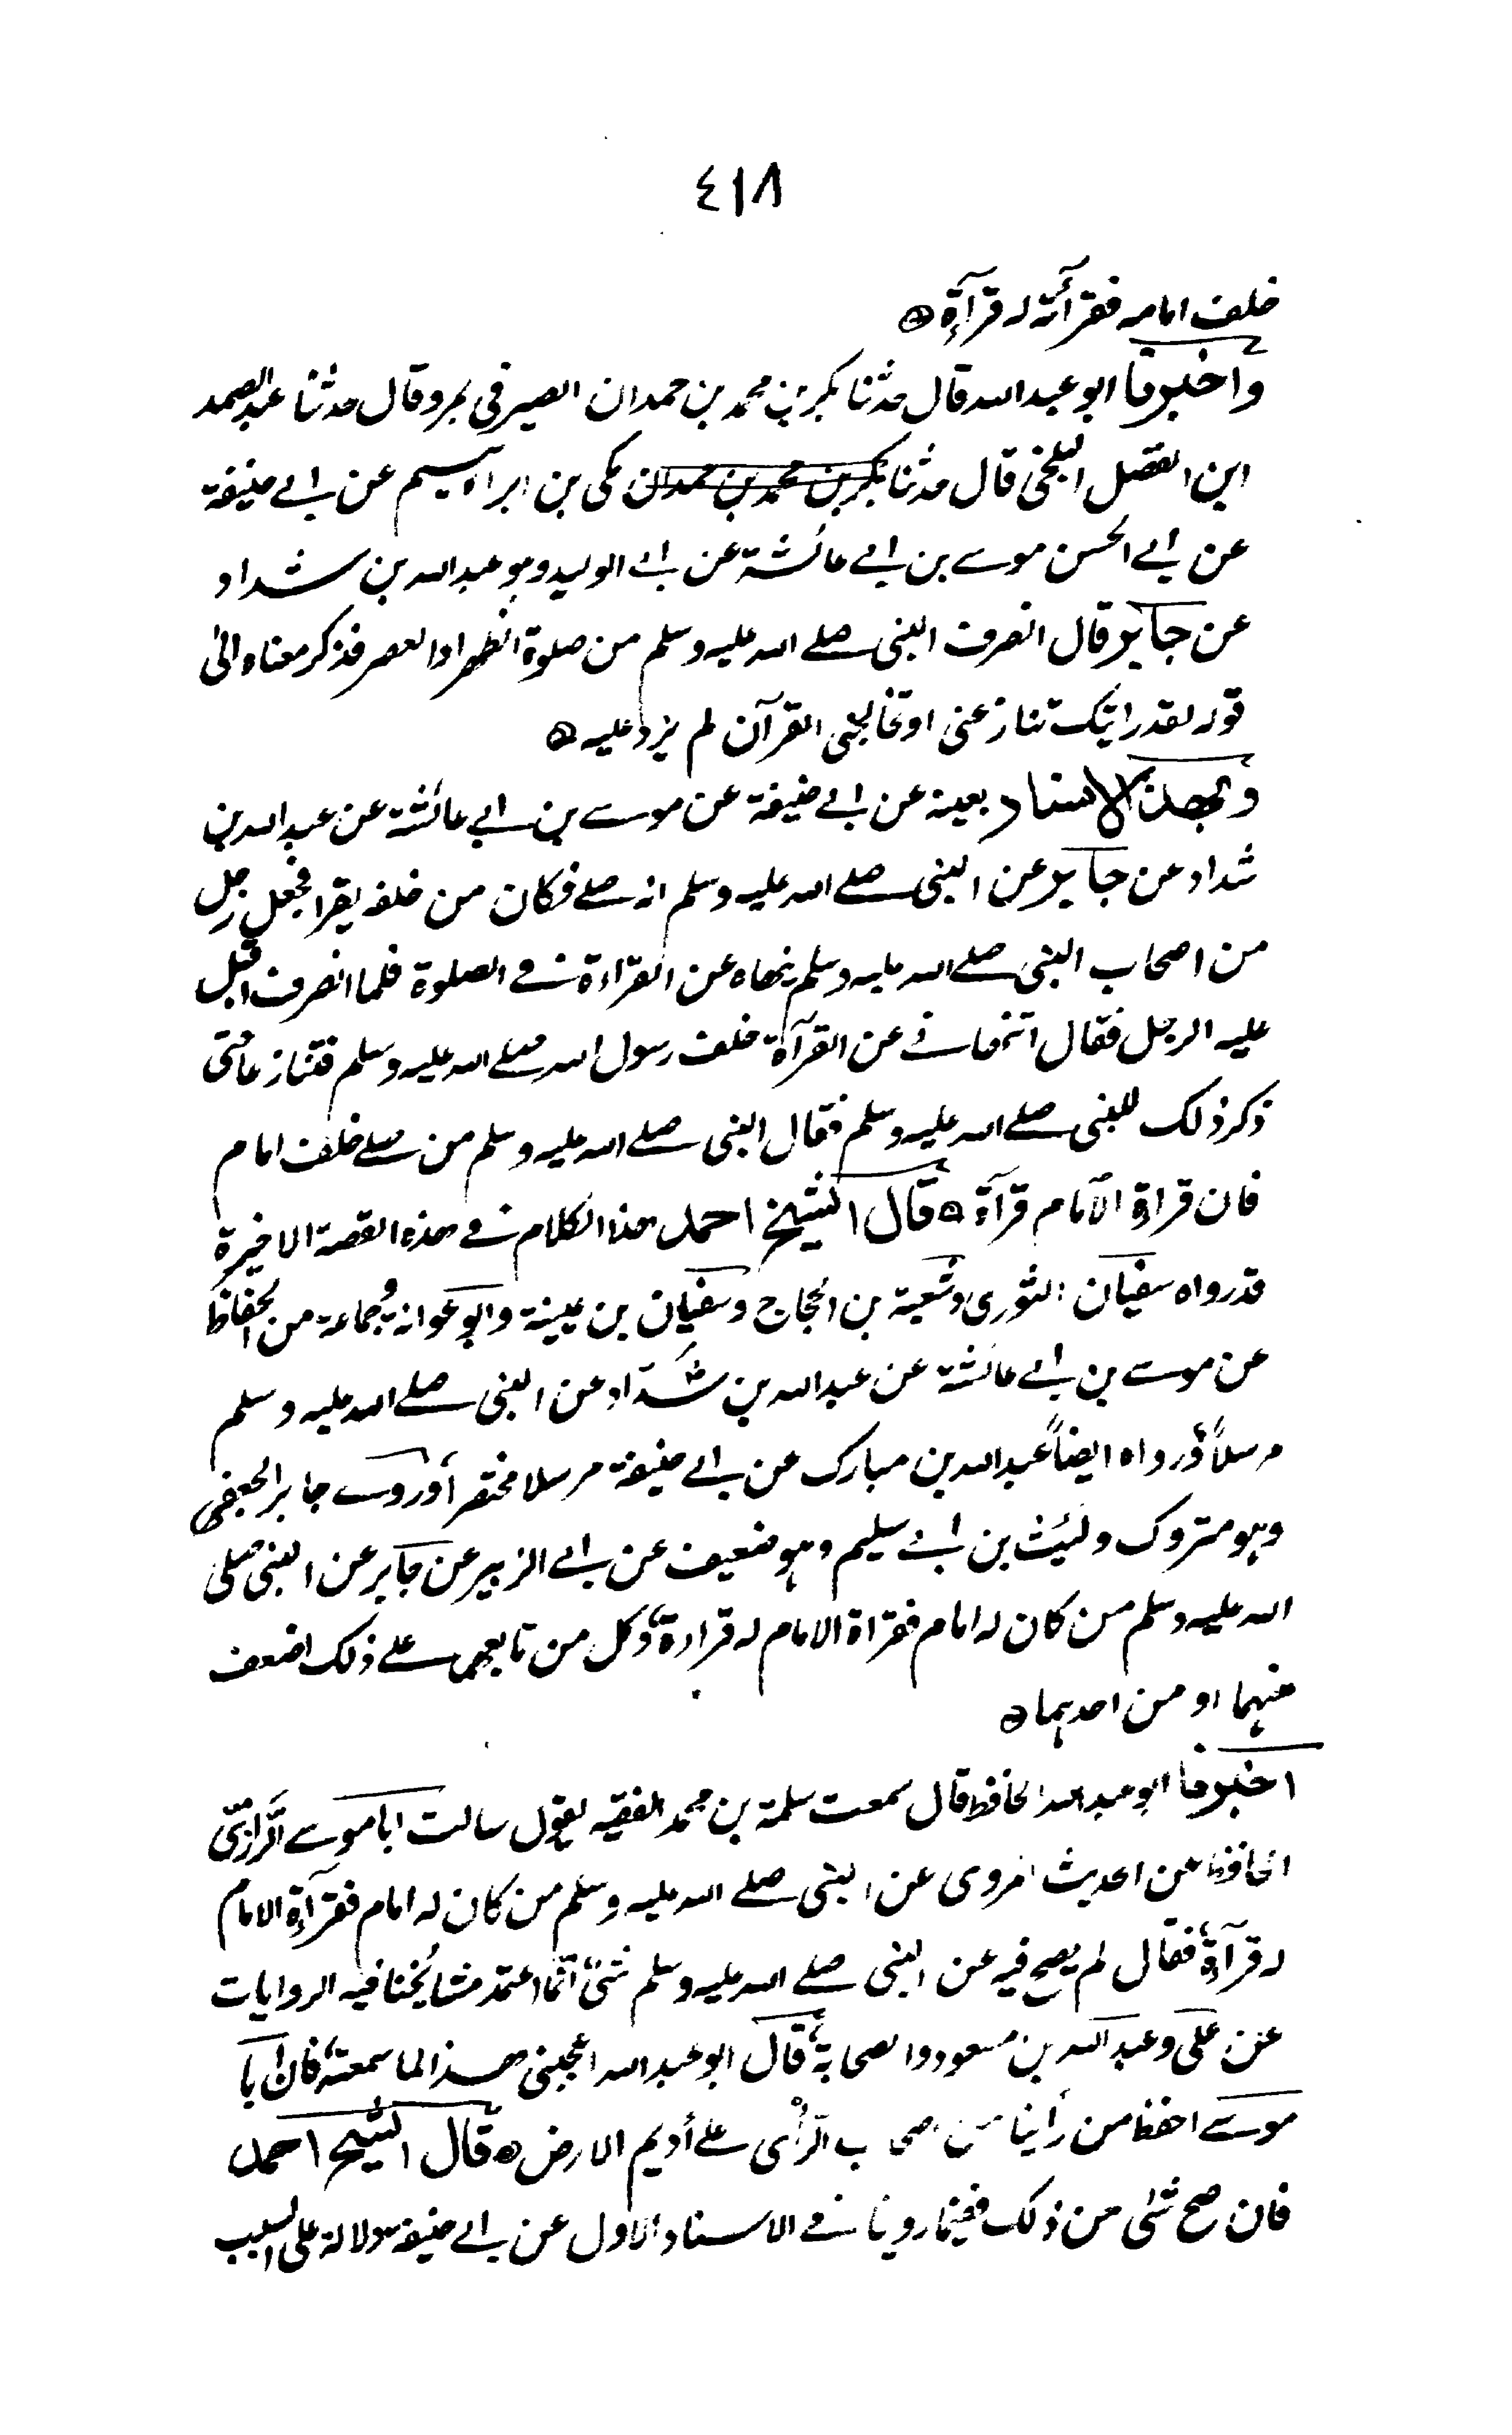 ٤١٨
خلف امامه فقرائته له قرآءة
واخبرنا ابو عبد الله قال حدثنا بكر بن محمد بن حمدان الصيرفي بمرو قال حدثنا عبد الصمد
ابن الفضل البلخي قال حدثنا بكر بن محمد بن حمدان مكي بن ابراهيم عن ابي حنيفة
عن ابي الحسن موسے بن ابي عائشة عن ابي الوليد وهو عبد الله بن شداد
عن جابر قال انصرف النبي صلے الله عليه وسلم من صلوة الظهر او العصر فذكر معناه الى
قوله لقد رايتك تنازعني او تخالجني القرآن لم يزد عليه
وبهذا الاسناد بعينه عن ابي حنيفة عن موسے بن ابي عائشة عن عبد الله بن
شداد عن جابر عن النبي صلے الله عليه وسلم انه صلے فكان من خلفه يقرا فجعل رجل
من اصحاب النبي صلے الله عليه وسلم ينهاه عن القراءة في الصلوة فلما انصرف اقبل
عليه الرجل فقال اتنهاني عن القرآءة خلف رسول الله صلے الله عليه وسلم فتنازعا حتى
ذكر ذلك للنبي صلے الله عليه وسلم فقال النبي صلے الله عليه وسلم من صلے خلف امام
فان قراة الامام له قرآءة قال الشيخ احمد هذا الكلام في هذه القصة الاخيرة
قد رواه سفيان الثوري وشعبة بن الحجاج وسفيان بن عيينة وابو عوانة وجماعة من الحفاظ
عن موسے بن ابي عائشة عن عبد الله بن شداد عن النبي صلے الله عليه وسلم
مرسلاً ورواه ايضاً عبد الله بن مبارك عن ابي حنيفة مرسلا مختصرا وروے جابر الجعفي
وهو متروك وليث بن ابي سليم وهو ضعيف عن ابي الزبير عن جابر عن النبي صلى
الله عليه وسلم من كان له امام فقراة الامام له قراءة وكل من تابعهما علے ذلك اضعف
منهما او من احدهما
اخبرنا ابو عبد الله الحافظ قال سمعت سلمة بن محمد الفقيه يقول سالت ابا موسے الرازي
الحافظ عن الحديث المروى عن النبي صلے الله عليه وسلم من كان له امام فقرآءة الامام
له قرآءة فقال لم يصح فيه عن النبي صلے الله عليه وسلم شئ انما اعتمد مشايخنا فيه الروايات
عن علي وعبد الله بن مسعود والصحابة قال ابو عبد الله اعجبني هذا لما سمعته فان ابا
موسے احفظ من رأينا من اصحاب الرأى علے أديم الارض قال الشيخ احمد
فان صح شئ من ذلك ففيما روينا في الاسناد الاول عن ابي حنيفة دلالة على السبب